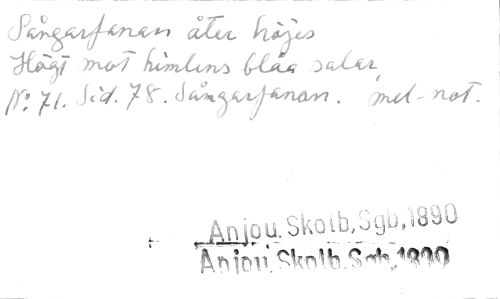 Sångarfanan åter höjes
Högt mot himlens blåa salar,
No: 71. Sid. 78. Sångarfanan. mel-not.
Anjou, Skolb, Sgb, 1890
Anjou, Skolb, Sgb, 1890